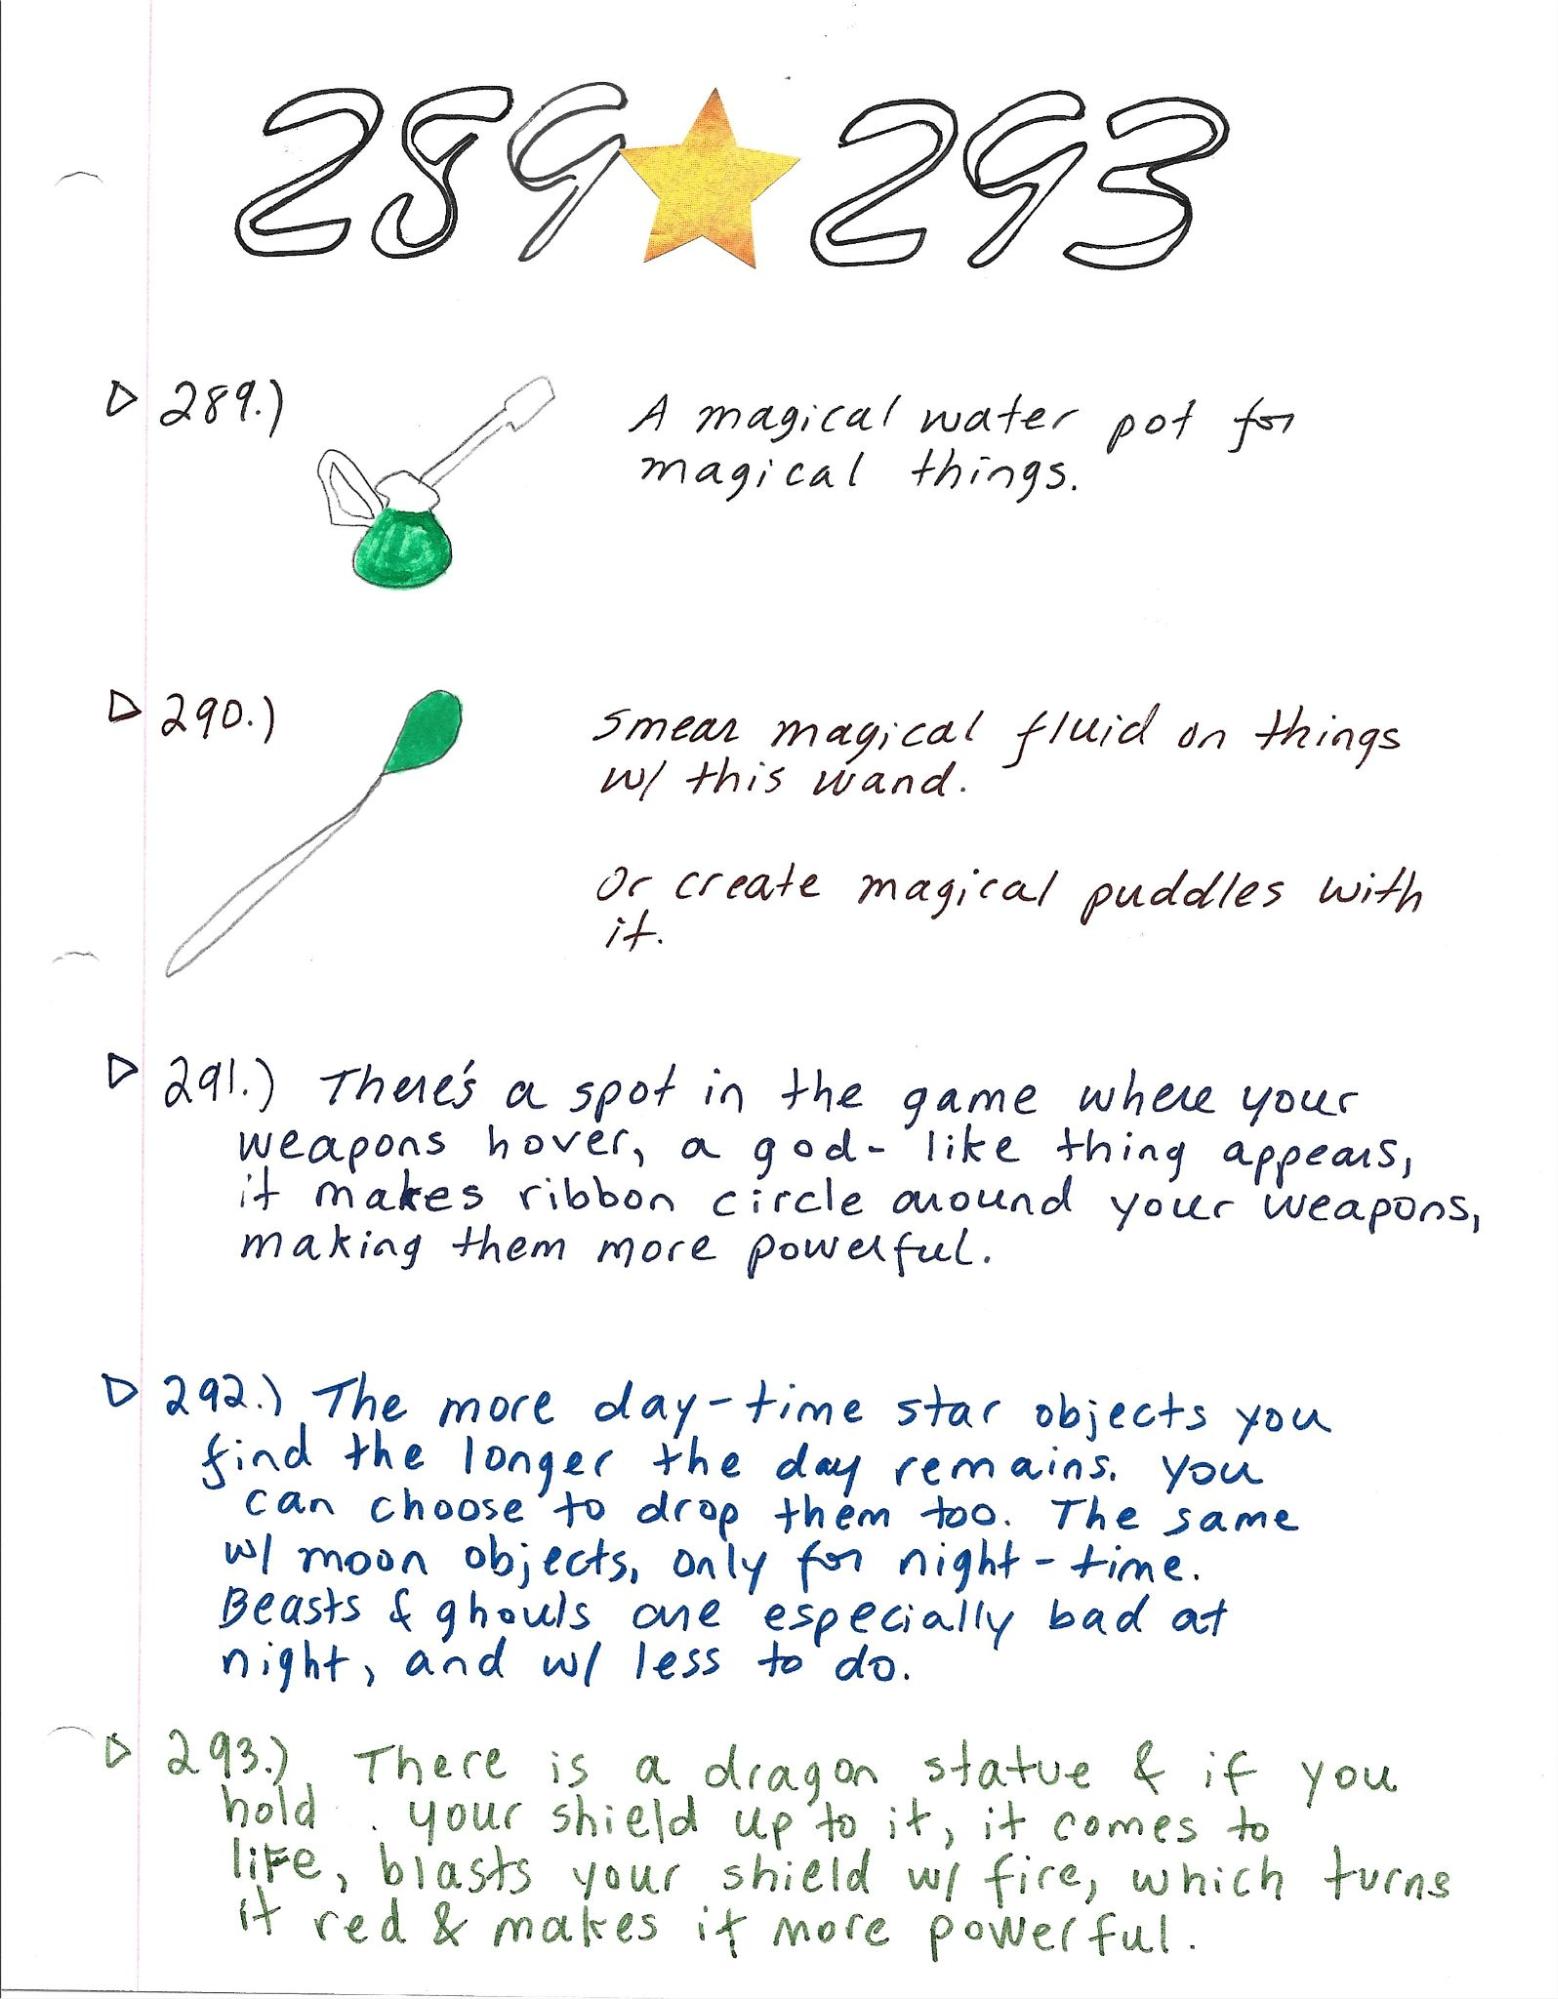 289 293
289.) A magical water pot for
magical things.
290.) Smear magical fluid on things
w/ this wand.
Or create magical puddles with
it.
291.) There's a spot in the game where your
weapons hover, a god-like thing appears,
it makes ribbon circle around your weapons,
making them more powerful.
292.) The more day-time star objects you
find the longer the day remains. You
can choose to drop them too. The same
w/ moon objects, only for night-time.
Beasts & ghouls are especially bad at
night, and w/ less to do.
293.) There is a dragon statue & if you
hold your shield up to it, it comes to
life, blasts your shield w/ fire, which turns
it red & makes it more powerful.